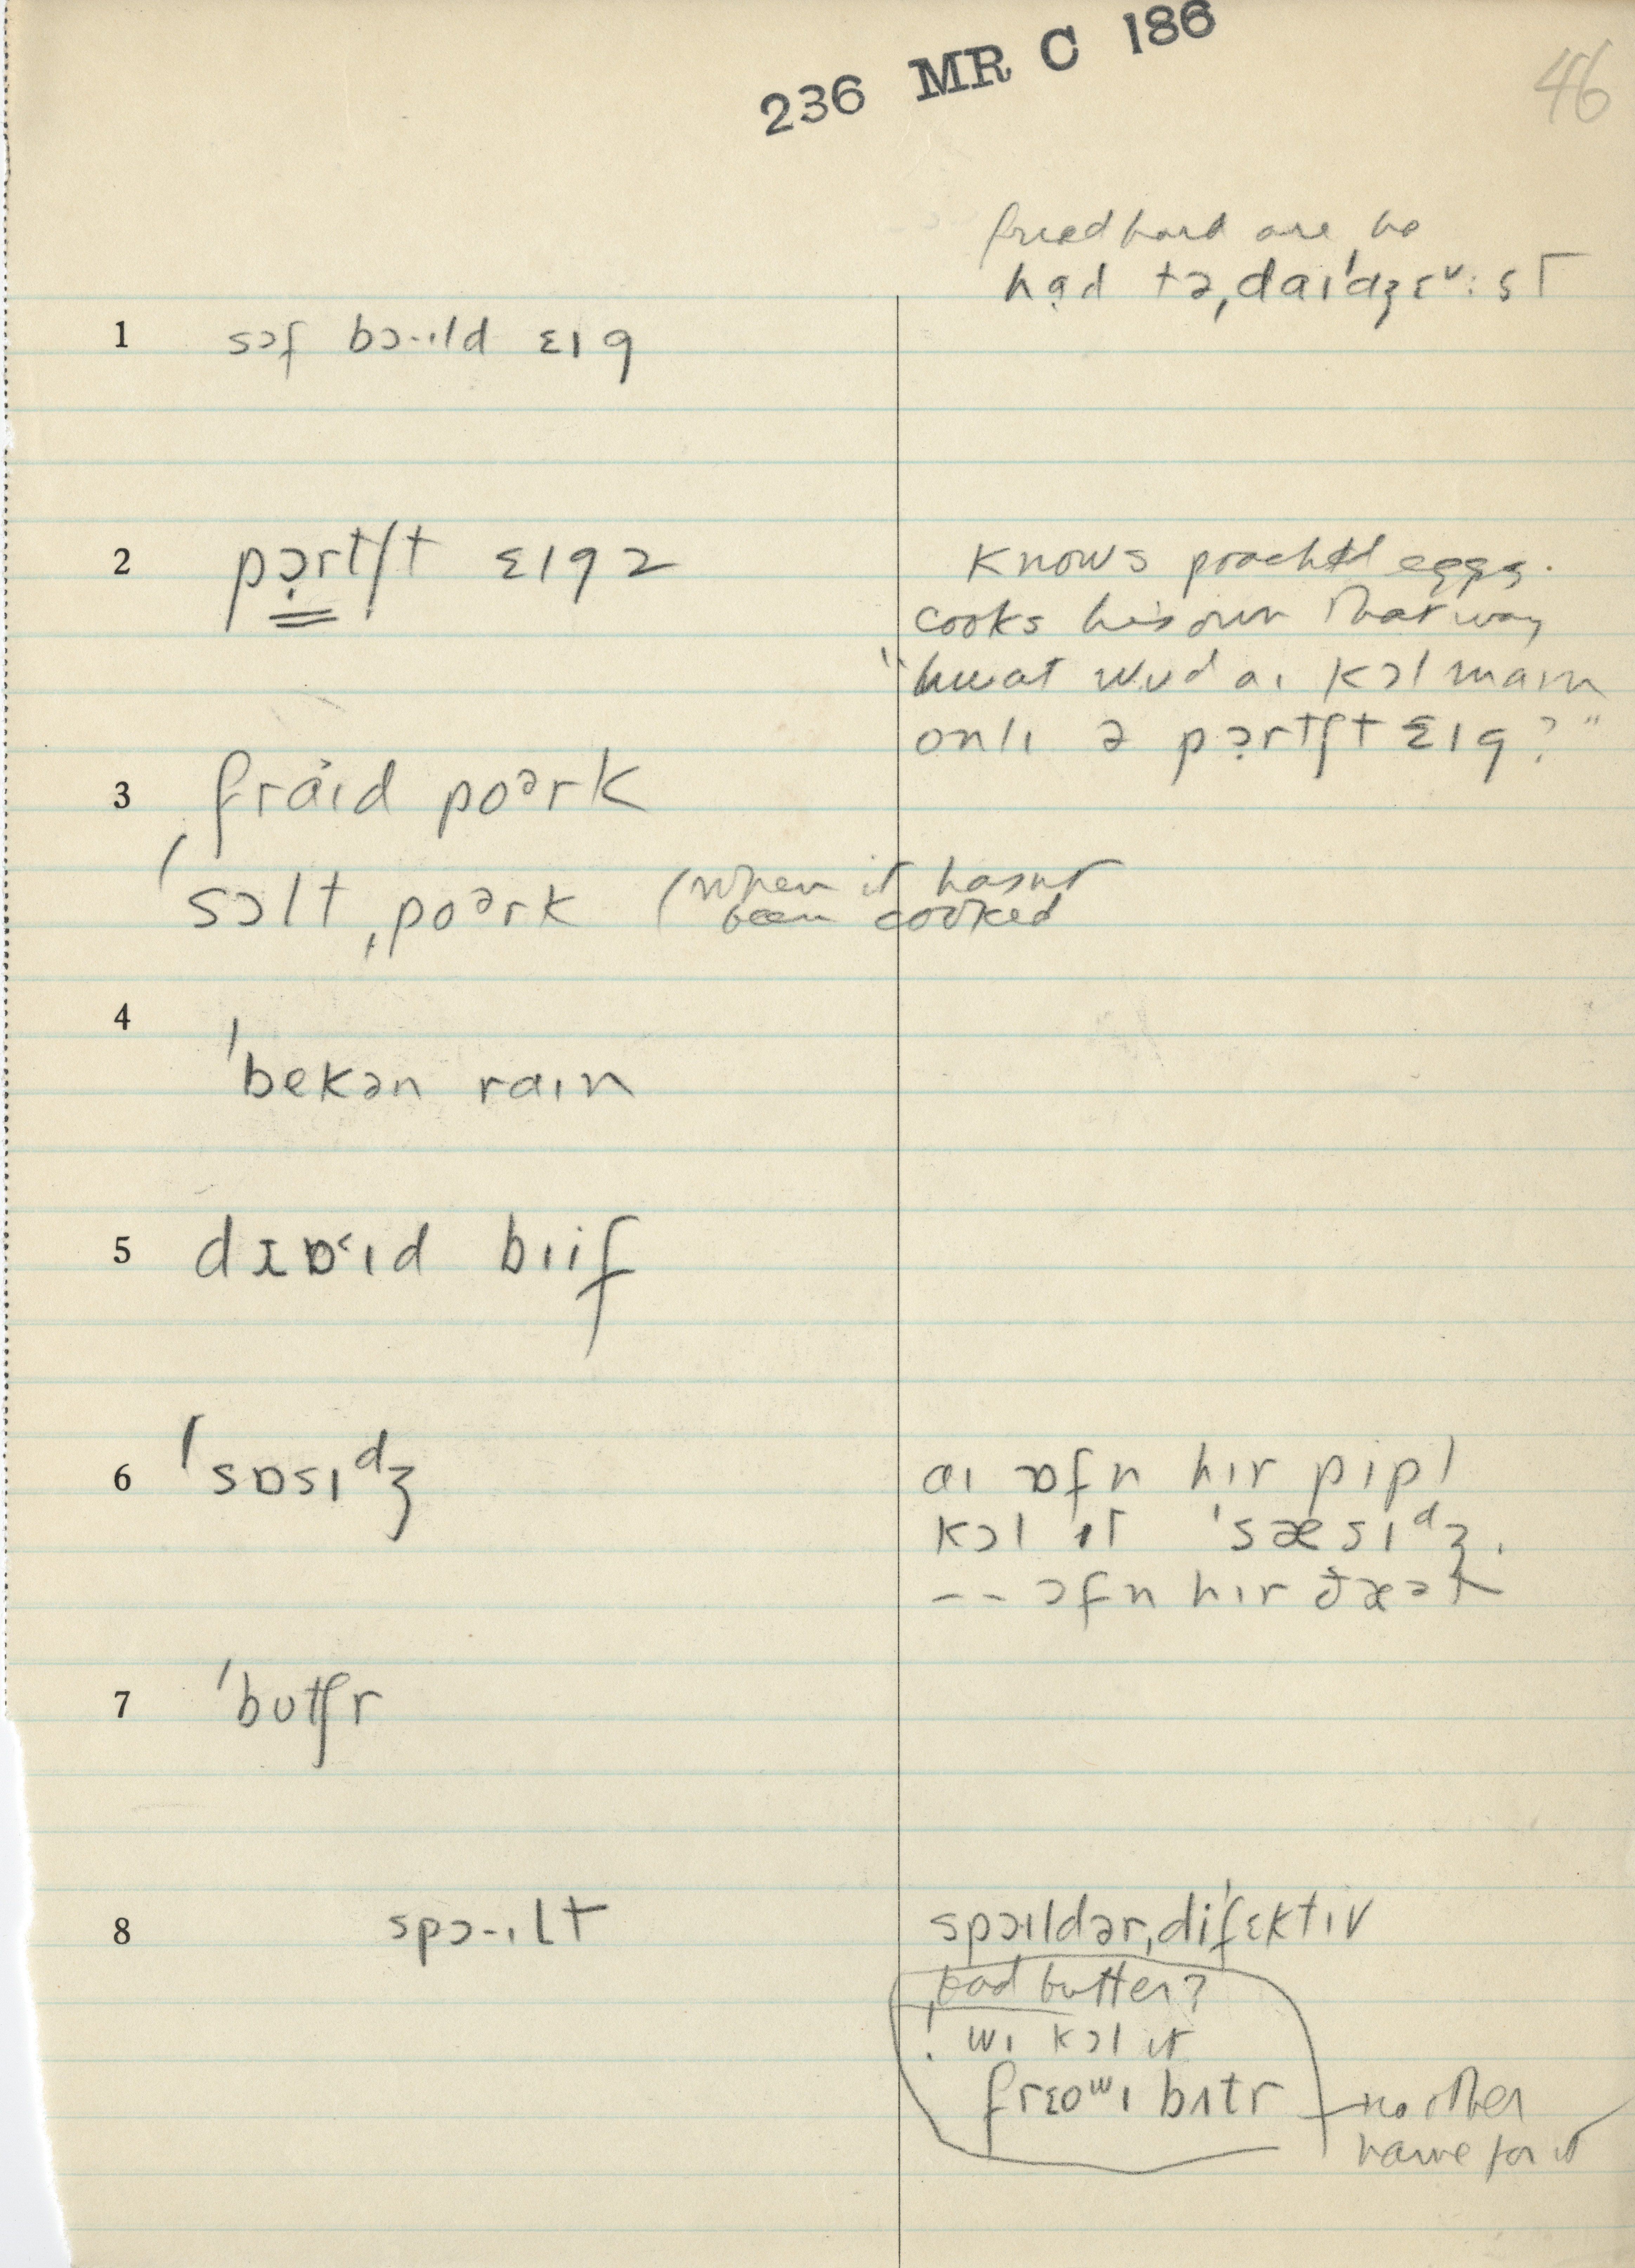 236 MR C 186
46
fried hard are ho
hɑ̣d tə,daɪ'dʒɛˇ:st
1 sɔf bɔ-ɪld ɛɪg
2 pɔ̣rtʃt ɛɪgz
Knows poached eggs.
cooks his own that way
"hwat wud aɪ kɔl maɪn
onlɪ ə pɔ̣rtʃt ɛɪg?"
3 fraɪd poᵊrk
'sɔlt ,poᵊrk (when it hasnt
been cooked
4 'bekən raɪn
5 dɪɒ˂ɪd bɪif
6 'sɒsɪᵈʒ
aɪ ɒfn hɪr pɪpl
kɔl ɪt 'sæsɪᵈʒ.
-- ɔfn hɪr ðæət
7 'butʃr
8 spɔ-ɪlt
spɔɪldər,di'fɛktɪv
bad butter?
! wɪ kɔl it
frɛoʷɪ bʌtr
no other
name for it